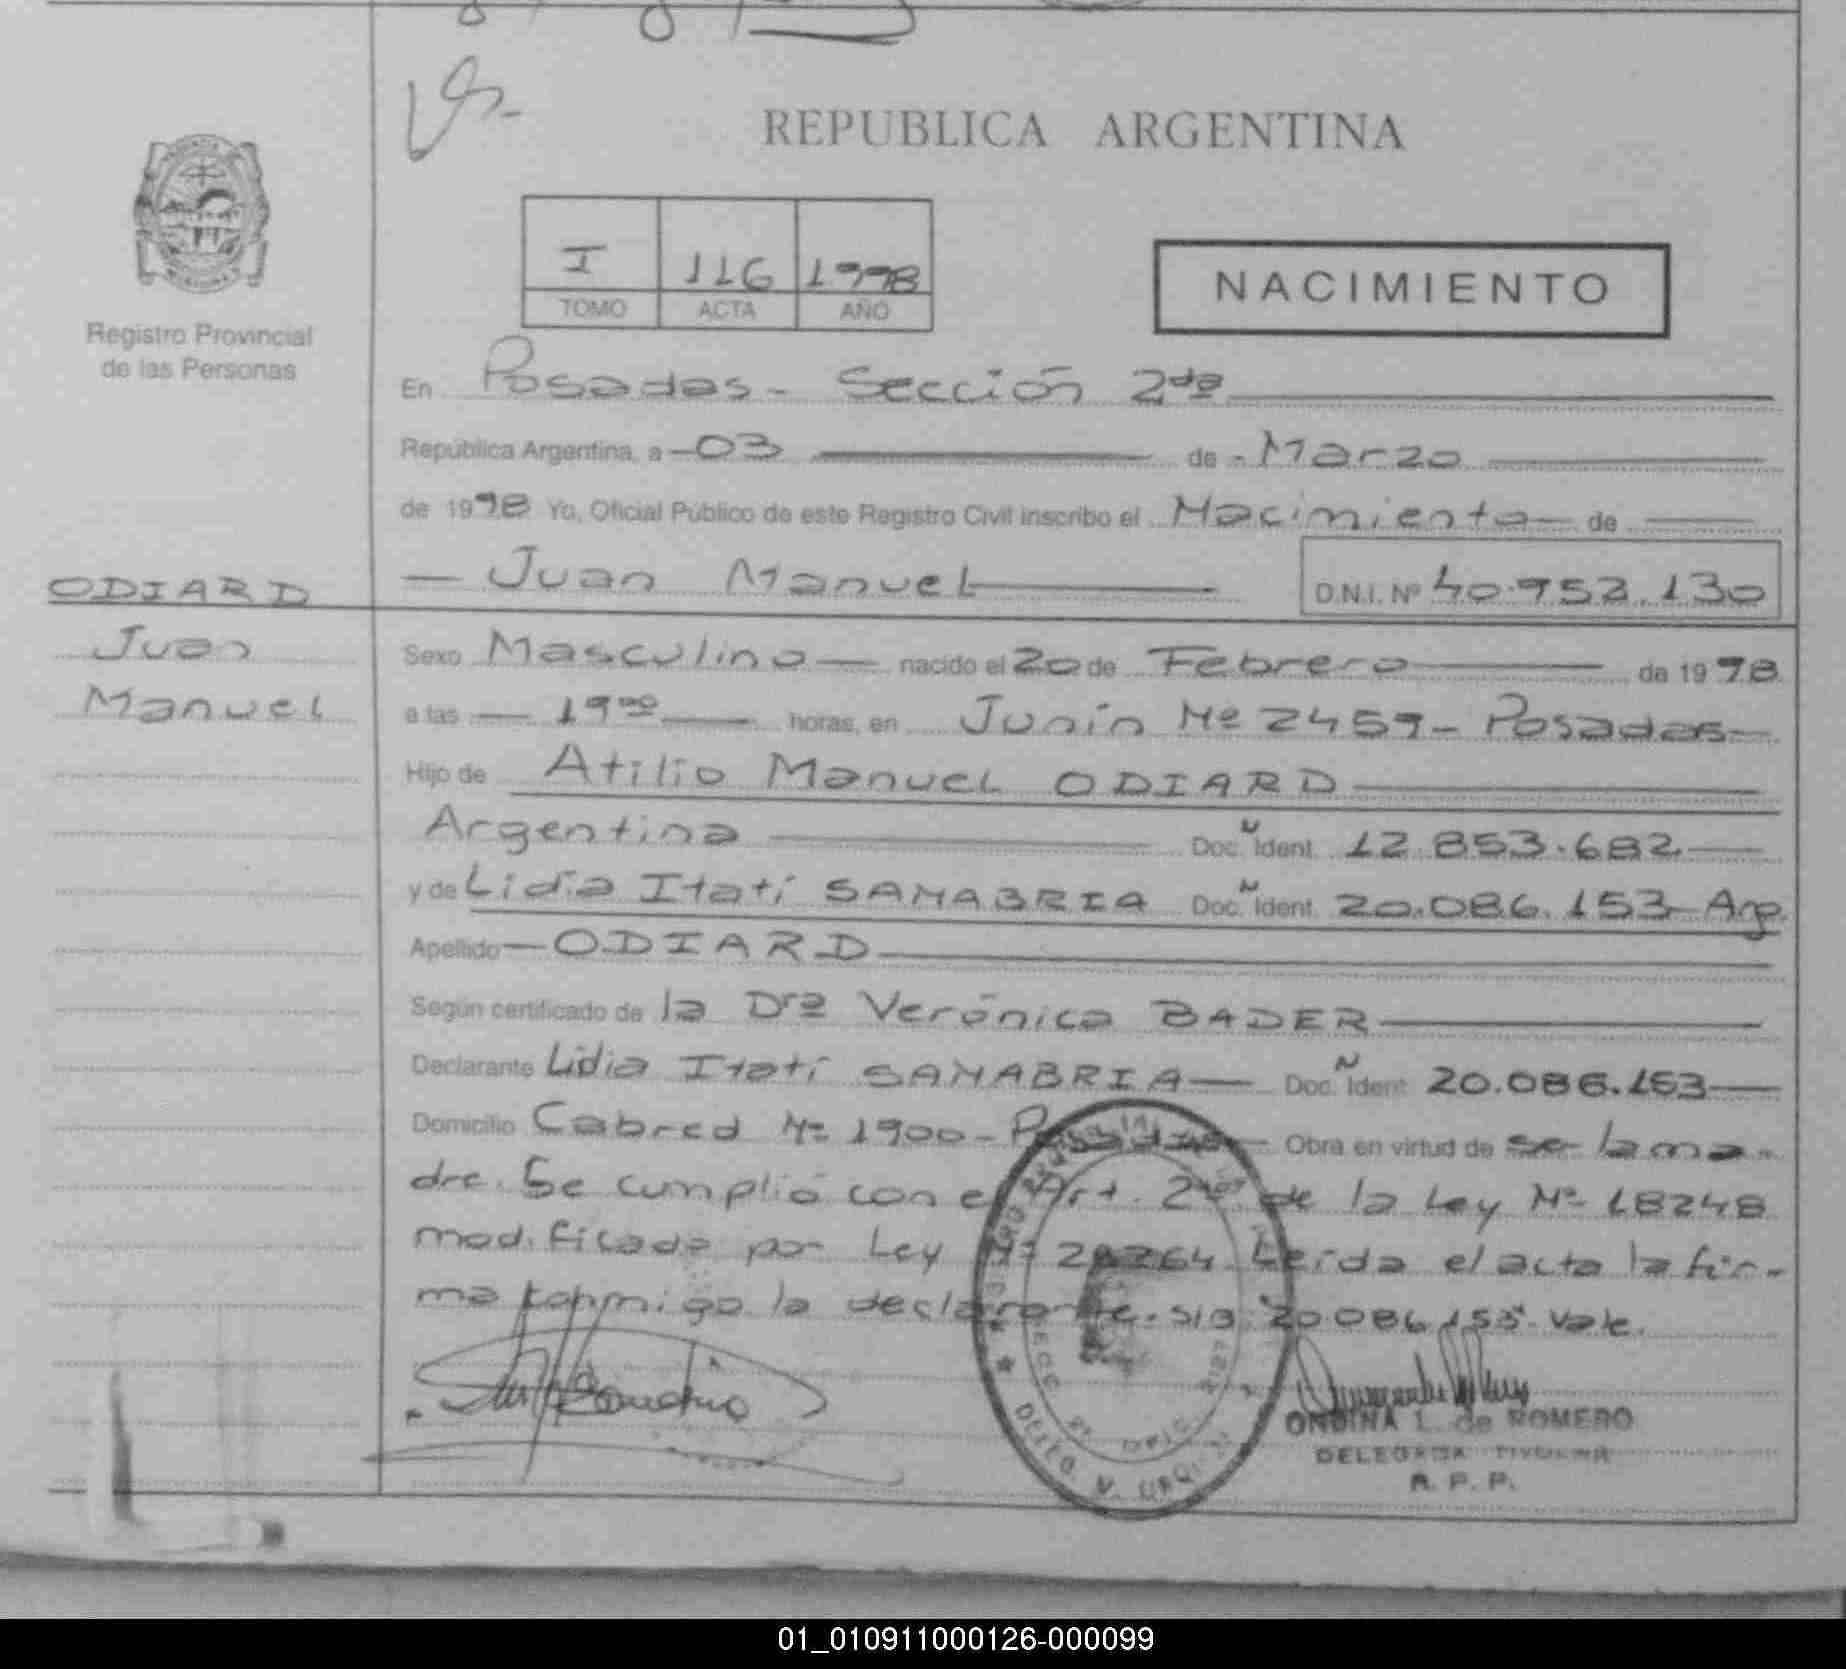 REPUBLICA ARGENTINA
I 116 1998
TOMO ACTA AÑO
NACIMIENTO
Registro Provincial
de las Personas
En Posadas - Sección 2da
República Argentina, a - 03 de - Marzo
de 1998 Yo, Oficial Público de este Registro Civil inscribo el Nacimiento de
Juan Manuel D.N.I. Nº 40.952.130
ODIARD
Juan
Manuel
Sexo Masculino nacido el 20 de Febrero de 1998
a las 19 00 horas, en Junín Nº 2459 - Posadas
Hijo de Atilio Manuel ODIARD
Argentina Doc. Ident. 12.853.682
y de Lidia Itatí SANABRIA Doc. Ident. 20.086.153 - Arg.
Apellido - ODIARD
Según certificado de la Dra Verónica BADER
Declarante Lidia Itatí SANABRIA Doc. Ident. 20.086.153
Domicilio Cabred Nº 1900 - Posadas Obra en virtud de ser la ma-
dre. Se cumplió con el Art. 2do de la Ley Nº 18248
modificada por Ley Nº Leída el acta la fir-
ma conmigo la declarante. S/B: 20.086.153 Vale.
ONDINA L. de ROMERO
DELEGADA TITULAR
R. P. P.
01_010911000126-000099